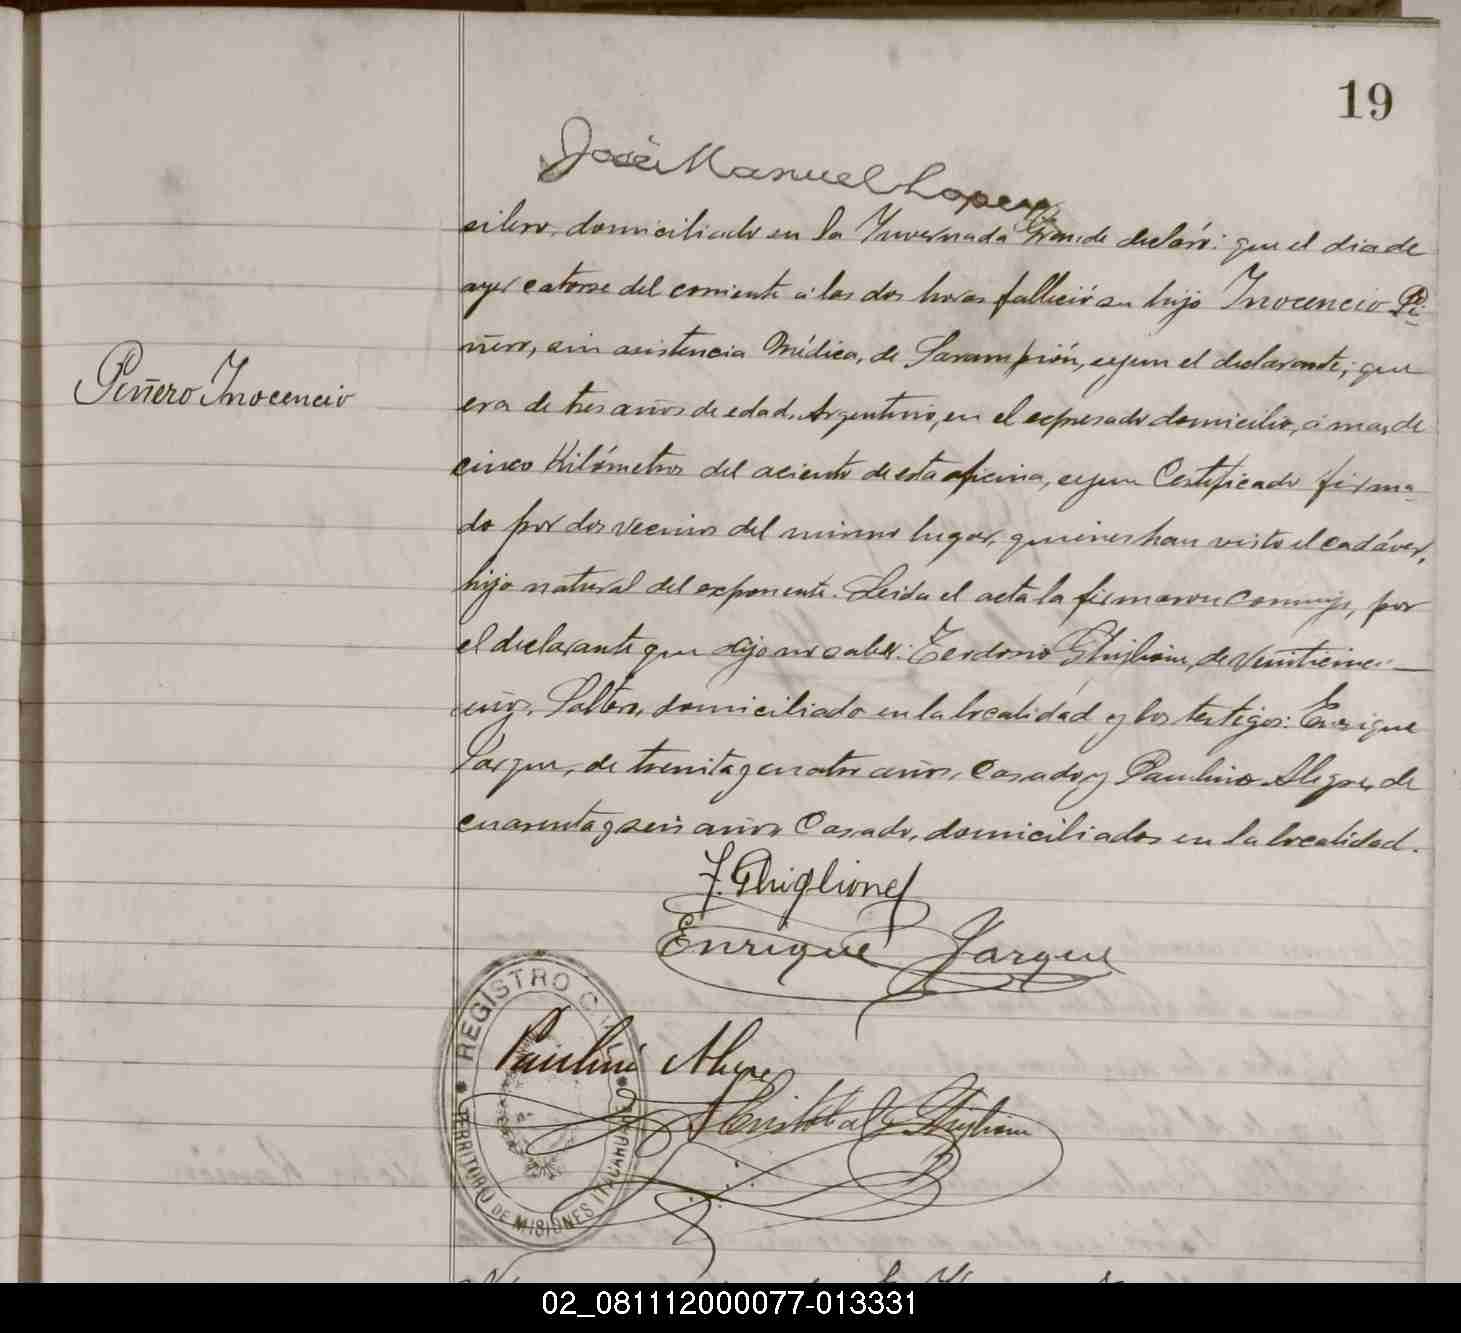 19
José Manuel Lopez
silero, domiciliado en la Invernada Grande declaró: que el dia de
ayer catorse del corriente á las dos horas falleció su hijo Inocencio Pi-
ñero, sin asistencia Médica, de Sarampión, segun el declarante; que
Piñero Inocencio
era de tres años de edad, Argentino, en el espresado domicilio, á mas de
cinco Kilómetros del aciento de esta oficina, segun Certificado firma-
do por dos vecinos del mismo lugar, quienes han visto el cadáver,
hijo natural del exponente. Leida el acta la firmaron conmigo, por
el declarante que dijo no saber: Teodosio Ghiglione, de veinticinco
años, Soltero, domiciliado en la localidad y los testigos: Enrique
Jarque, de treinta y cuatro años, Casado, y Paulino Alegre, de
cuarenta y seis años Casado, domiciliados en la localidad.
T. Ghiglione
Enrique Jarque
Paulino Alegre
Cristobal Ghiglione
REGISTRO CIVIL
TERRITORIO DE MISIONES ITACARUARÉ
02_081112000077-013331